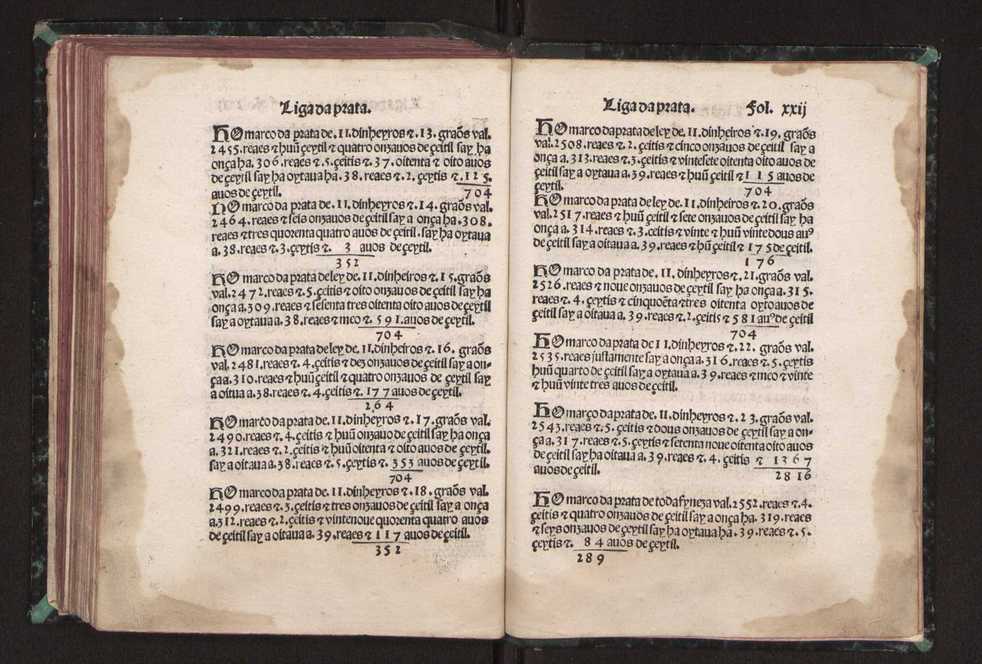 Liga da prata.
HO marco da prata de.11.dinheyros ⁊.13. graõs val.
2455.reaes ⁊ huũ çeytil ⁊ quatro onzauos de çeitil say ha
onça ha.306.reaes ⁊.5.çeitis ⁊.37.oitenta ⁊ oito auos
de çeytil say ha oytaua ha.38.reaes ⁊.2.çeytis ⁊.125.
auos de çeytil. 704
HO marco da prata de.11.dinheyros ⁊.14.graõs val.
2464.reaes ⁊ seis onzauos de çeitil say a onça ha.308.
reaes ⁊ tres quozenta quatro auos de çeitil. say ha oytaua
a.38.reaes ⁊.3.çeytis ⁊. 3 auos de çeytil.
352
HO marco da prata de ley de.11.dinheiros ⁊.15.graõs
val.2472.reaes ⁊.5.çeitis ⁊ oito onzauos de çeitil say ha
onça a.309.reaes ⁊ sesenta tres oitenta oito auos de çeytil
say a oytaua a.38.reaes ⁊ meo ⁊ 591.auos de çeytil.
704
HO marco da prata de ley de.11.dinheiros ⁊.16. graõs
val.2481.reaes ⁊.4.çeitis ⁊ dez onzauos de çeitil say a on-
ça a.310.reaes ⁊ huũ çeitil ⁊ quatro onzauos de çeytil say
a oitua a.38.reaes ⁊.4.çeitis ⁊.177 auos de çeytil.
264
HO marco da prata de.11.dinheyros ⁊.17.graõs val.
2490.reaes ⁊.4.çeitis ⁊ huũ onzauo de çeitil say ha onça
a.321.reaes ⁊.2.çeitis ⁊ huũ oitenta ⁊ oito auos de çeytil.
say a oitaua a.38.reaes ⁊.5.çeytis ⁊.353 auos de çeytil.
704
HO marco da prata de.11.dinheyros ⁊.18.graõs val.
2499.reaes ⁊.3.çeitis ⁊ tres onzauos de çeitil say a onça
a.312.reaes ⁊.2.çeitis ⁊ vinte noue quorenta quatro auos
de çeitil say a oitaua a.39.reaes ⁊ 117 auos de çeitil.
352
Liga da prata. Fol. xxij
HO marco da prata de ley de.11.dinheiros ⁊.19. graõs
val.2508.reaes ⁊.2.çeitis ⁊ cinco onzauos de çeitil say a
onça a.313.reaes ⁊.3.çeitis ⁊ vinte sete oitenta oito auos de
çeitil say a oytaua a.39.reaes ⁊ huũ çeitil ⁊ 115 auos de
çeytil. 704
HO marco da prata de ley de.11.dinheiros ⁊.20.graõs
val.2517.reaes ⁊ huũ çeitil ⁊ sete onzauos de çeitil say ha
onça a.314.reaes ⁊.3.çeitis ⁊ vinte ⁊ huũ vinte dous auꝰ
de çeitil say a oitaua a.39.reaes ⁊ hũ çeitil ⁊ 175 de çeitil.
176
HO marco da prata de.11. dinheyros ⁊.21.graõs val.
2526.reaes ⁊ noue onzauos de çeytil say ha onça a.315.
reaes ⁊.4.çeytis ⁊ cinquoẽta ⁊ tres oitenta oyto auos de
çeitil say a oitaua a.39.reaes ⁊.2.çeitis ⁊ 581 auꝰ de çeitil
704
HO marco da prata de 11.dinheyros ⁊.22. graõs val.
2535.reaes justamente say a onça a.316.reaes ⁊.5.çeytis
huũ quarto de çeitil say a oytaua a.39.reaes ⁊ meo ⁊ vinte
⁊ huũ vinte tres auos de çeitil.
HO março da prata de.11.dinheyros ⁊.23.graõs val.
2543.reaes ⁊.5.çeitis ⁊ dous onzauos de çeytil say a on-
ça a.317.reaes ⁊.5.çeytis ⁊ setenta noue oitenta oito auos
de çeitil say ha oitaua a.39.reaes ⁊.4.çeitis ⁊ 1367
auos de çeitil. 2816
HO marco da prata de toda fyneza val.2552.reaes ⁊.4.
çeitis ⁊ quatro onzauos de çeitil say a onça ha.319.reaes
⁊ seys onzauos de çeytil say ha oytaua ha.39.reaes ⁊.5.
çeytis ⁊. 84 auos de çeytil.
289